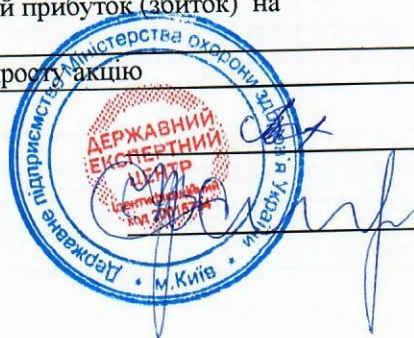 й прибуток (збиток) на
росту акцію
Державне підприємство Міністерства охорони здоров'я України
* м.Київ *
ДЕРЖАВНИЙ
ЕКСПЕРТНИЙ
ЦЕНТР
Ідентифікаційний
код